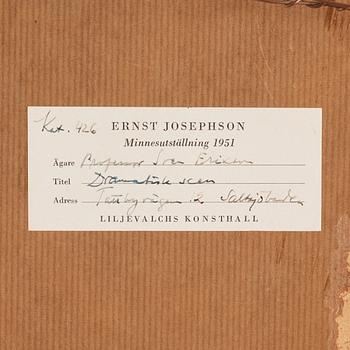 Kat. 426 ERNST JOSEPHSON
Minnesutställning 1951
Ägare Professor Sven Ericson
Titel Dramatisk scen
Adress Tattbyvägen 12 Saltsjöbaden
LILJEVALCHS KONSTHALL